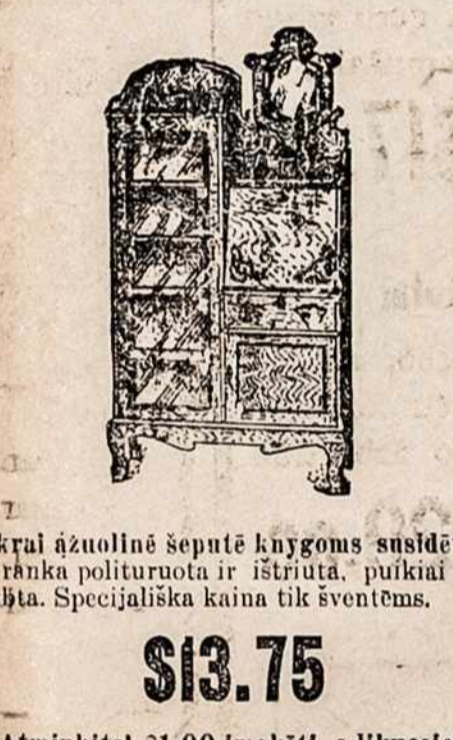 krai ąžuolinė šeputė knygoms susidė
ranka polituruota ir ištriuta, puikiai
bta. Specijališka kaina tik šventėms.
$13.75
$1.00